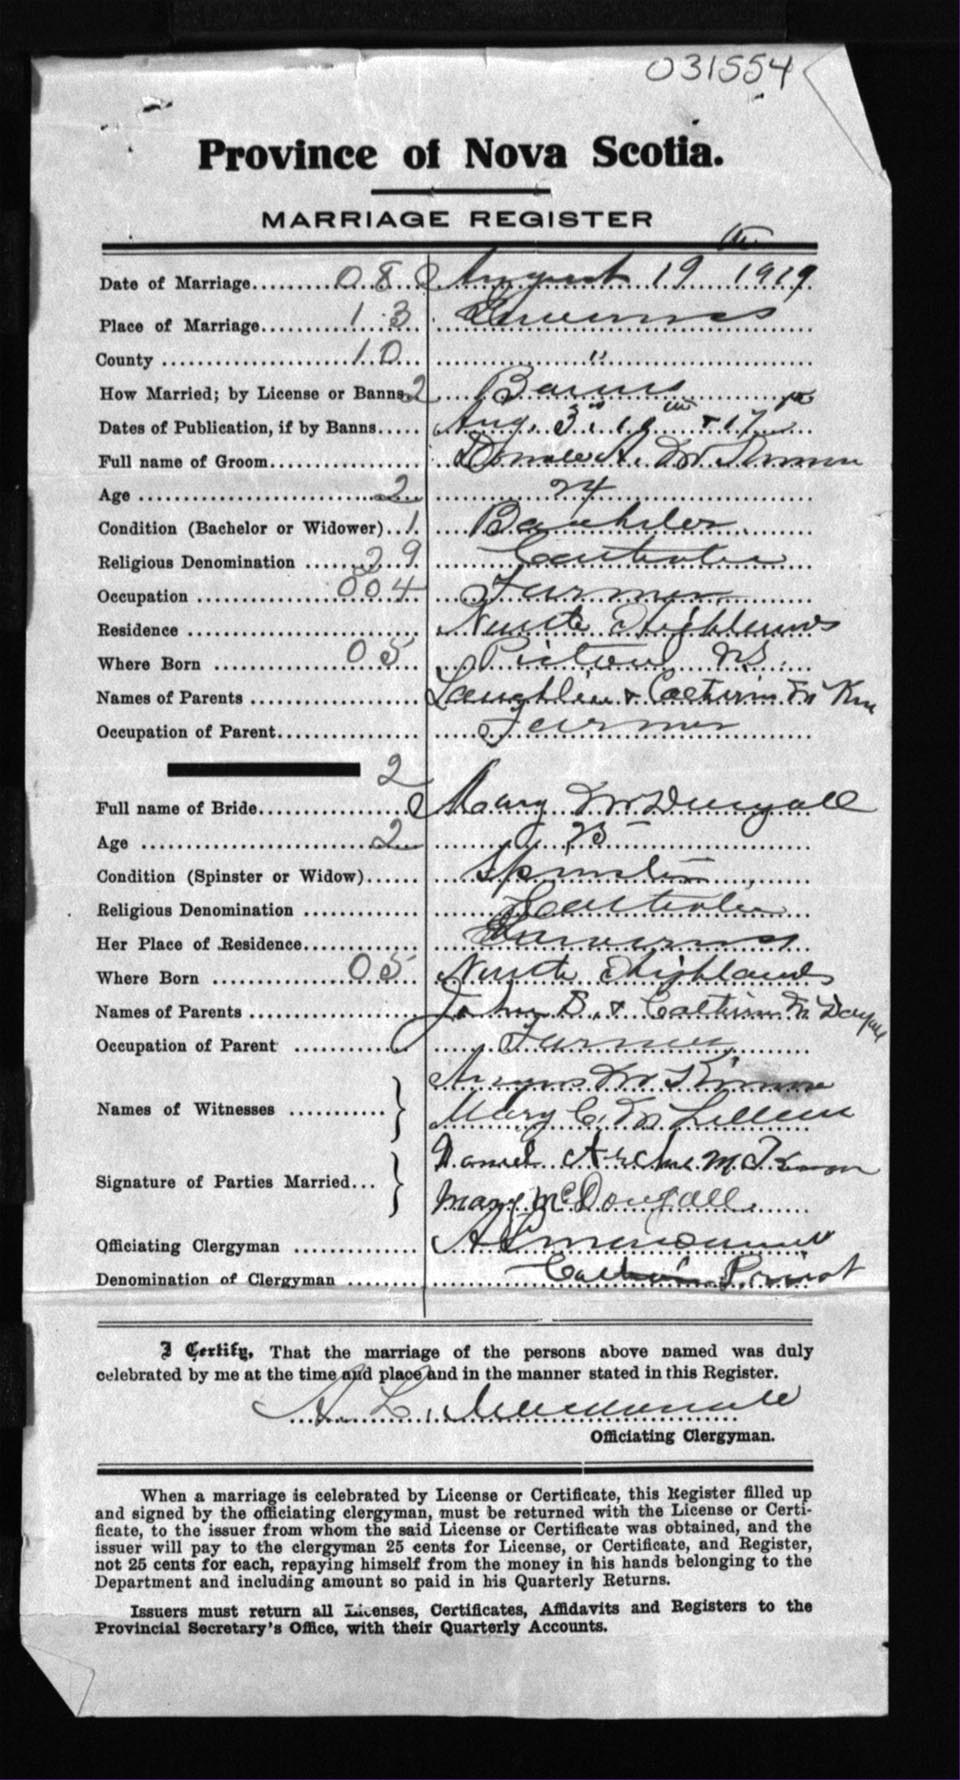 031554
Province of Nova Scotia.
MARRIAGE REGISTER
Date of Marriage 08 August 19th 1919
Place of Marriage 1 3 Inverness
County 10 "
How Married; by License or Banns 2 Banns
Dates of Publication, if by Banns Aug. 3rd 10th & 17th
Full name of Groom A. McKinnon
Age 2 24
Condition (Bachelor or Widower) 1 Bachelor
Religious Denomination 29 Catholic
Occupation 004 Farmer
Residence North Highlands
Where Born 05 Pictou NS.
Names of Parents Laughlin & Catherine McKin
Occupation of Parent Farmer
2
Full name of Bride Mary McDougall
Age 2 25
Condition (Spinster or Widow) Spinster
Religious Denomination Catholic
Her Place of Residence Inverness
Where Born 05 North Highlands
Names of Parents John B. & Catherine McDougall
Occupation of Parent Farmer
Names of Witnesses Angus McKinnon
Mary C. Mc
Signature of Parties Married Daniel Archie McKinnon
Mary McDougall
Officiating Clergyman A L Macdonald
Denomination of Clergyman Catholic Priest
I Certify, That the marriage of the persons above named was duly
celebrated by me at the time and place and in the manner stated in this Register.
A. L. Macdonald
Officiating Clergyman.
When a marriage is celebrated by License or Certificate, this Register filled up
and signed by the officiating clergyman, must be returned with the License or Certi-
ficate, to the issuer from whom the said License or Certificate was obtained, and the
issuer will pay to the clergyman 25 cents for License, or Certificate, and Register,
not 25 cents for each, repaying himself from the money in his hands belonging to the
Department and including amount so paid in his Quarterly Returns.
Issuers must return all Licenses, Certificates, Affidavits and Registers to the
Provincial Secretary's Office, with their Quarterly Accounts.